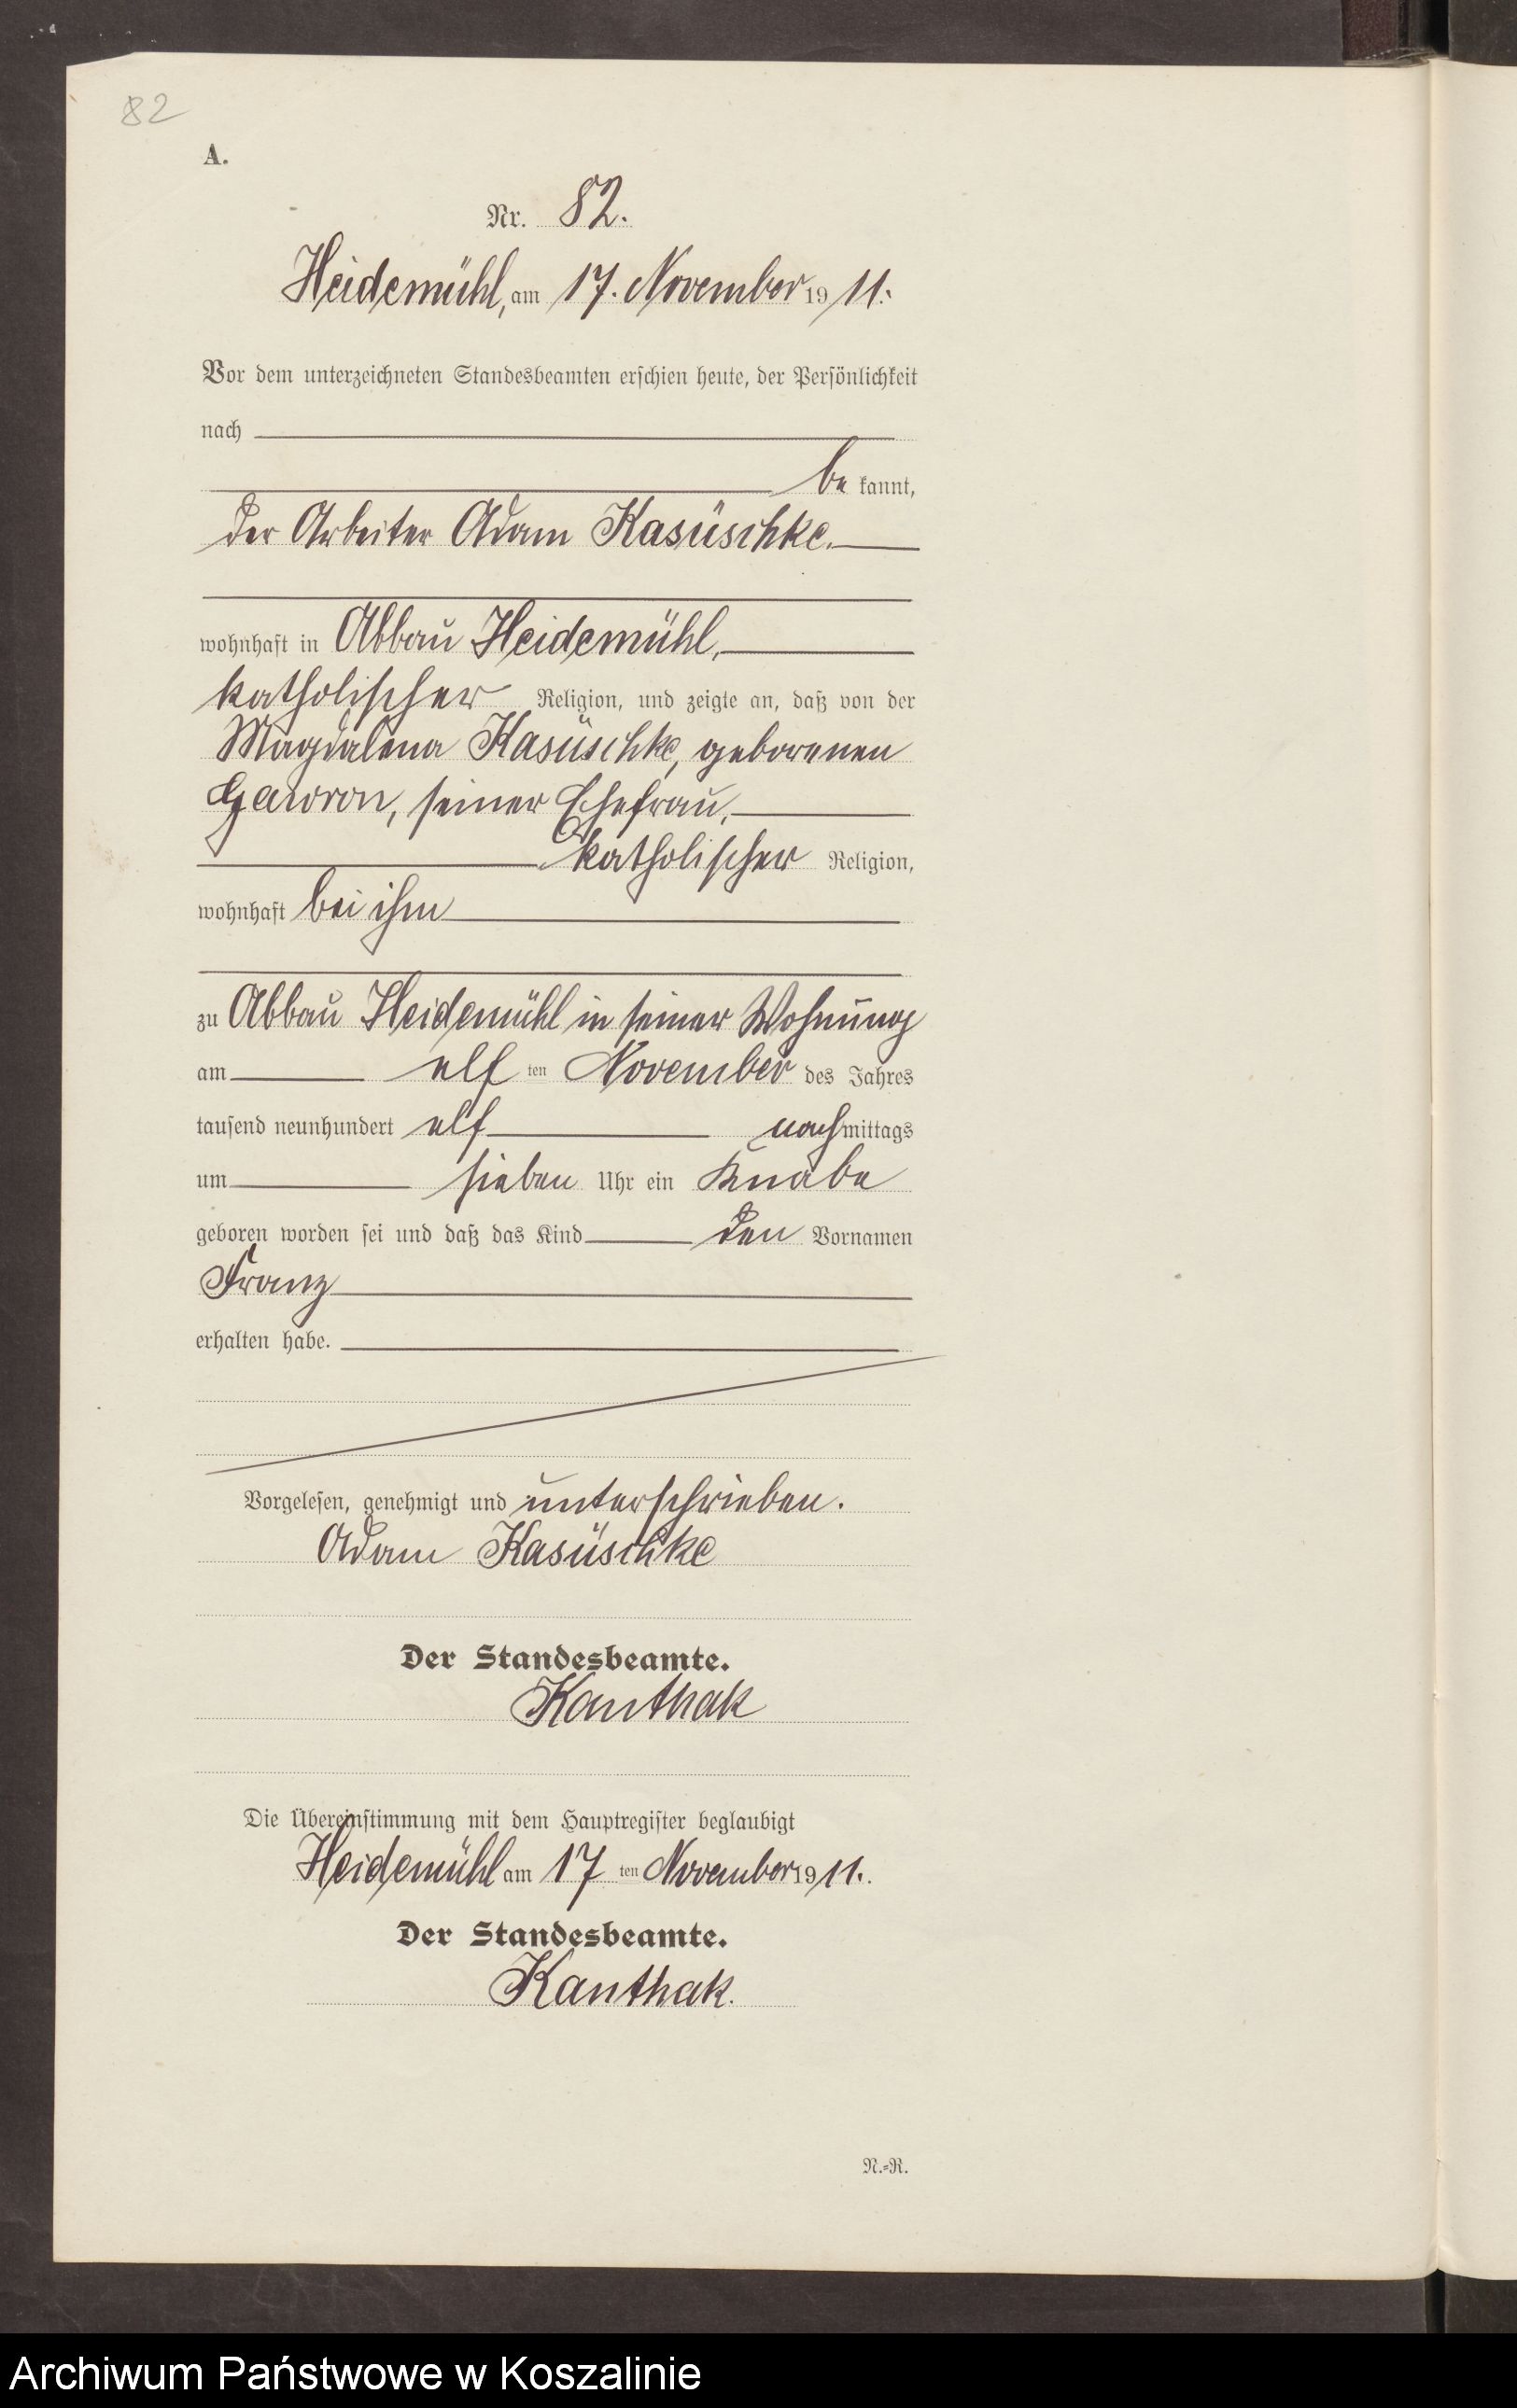 82
A.
Nr. 82.
Heidemühl, am 17. November 1911.
Vor dem unterzeichneten Standesbeamten erschien heute, der Persönlichkeit
nach
be kannt,
der Arbeiter Adam Kasuschke.
wohnhaft in Abbau Heidemühl,
katholischer Religion, und zeigte an, daß von der
Magdalena Kasuschke, geborenen
Gawron, seiner Ehefrau,
katholischer Religion,
wohnhaft bei ihm
zu Abbau Heidemühl in seiner Wohnung
am elf ten November des Jahres
tausend neunhundert elf nachmittags
um sieben Uhr ein Knabe
geboren worden sei und daß das Kind den Vornamen
Franz
erhalten habe.
Vorgelesen, genehmigt und unterschrieben.
Adam Kasuschke
Der Standesbeamte.
Kanthak
Die Übereinstimmung mit dem Hauptregister beglaubigt
Heidemühl am 17 ten November 1911.
Der Standesbeamte.
Kanthak.
N.=R.
Archiwum Państwowe w Koszalinie